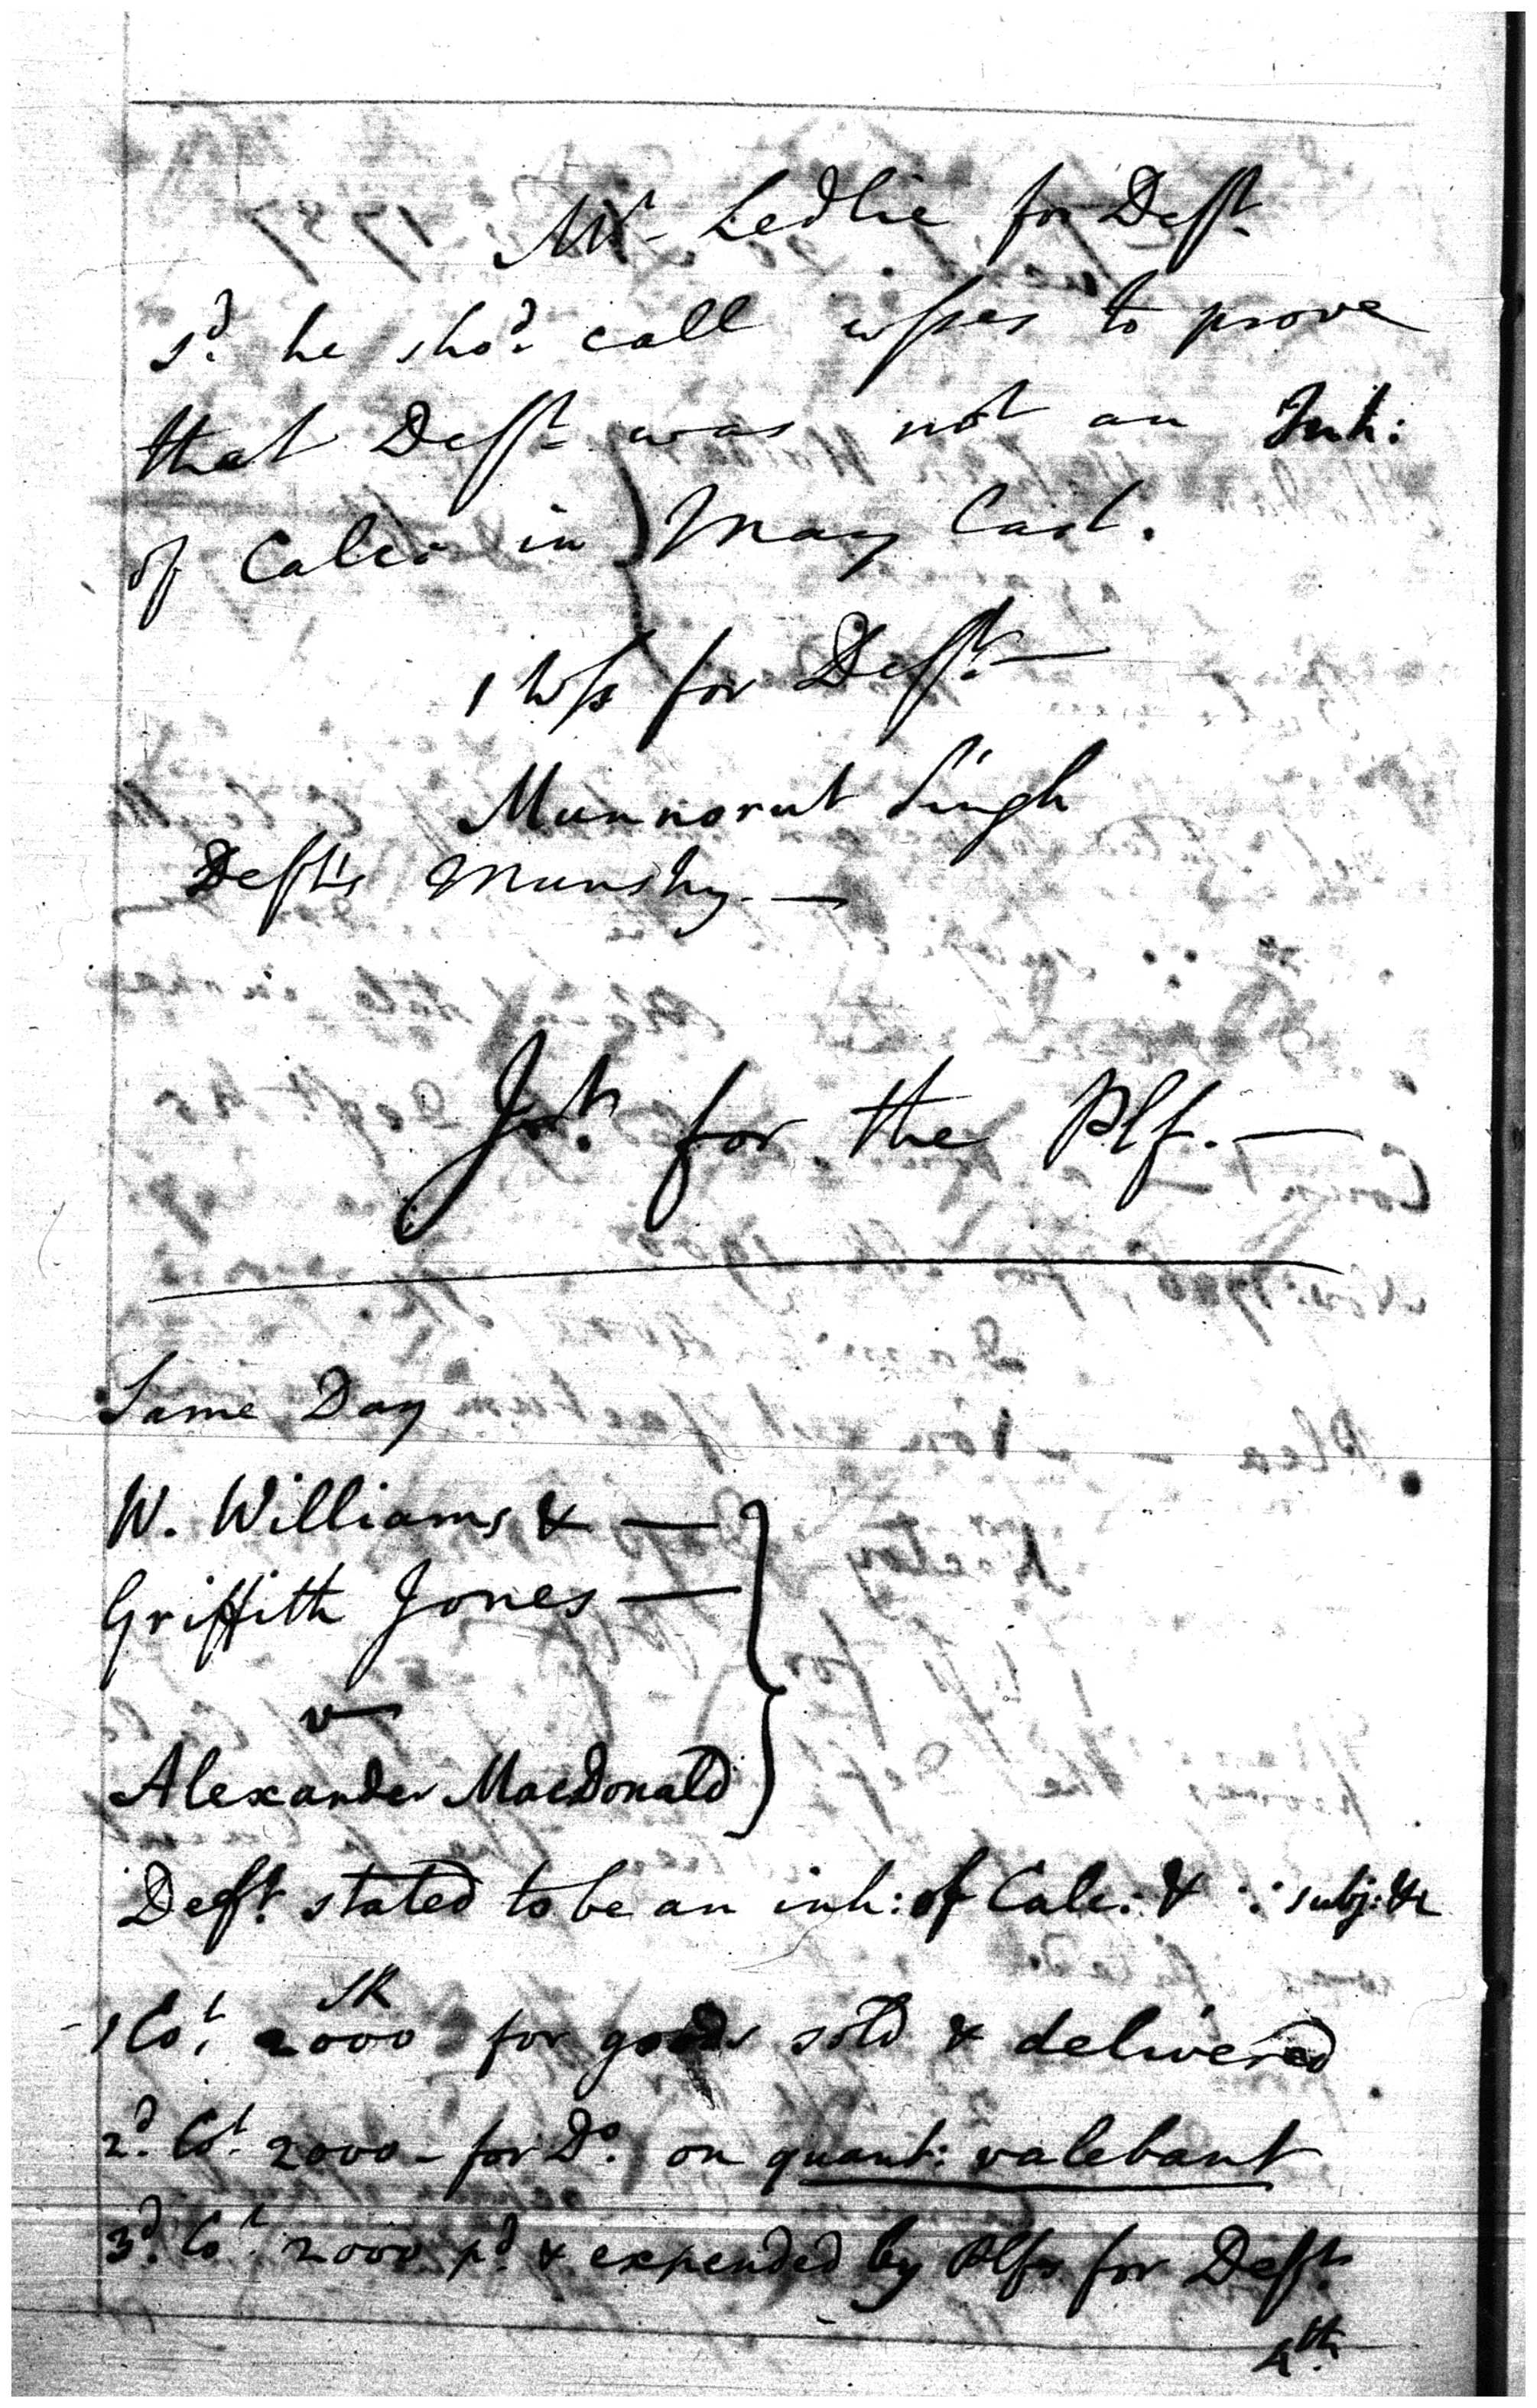 Mr. Ledlie for Deft.
sd. he shod. call wsses to prove
that Deft. was not an Inh:
of Calc: in May last.
1 Wss for Deft. —
Munnorut Singh
Deft's Munshy. —
Jt. for the Plf. —
Same Day
W. Williams & —
Griffith Jones —
v
Alexander MacDonald
Deft. stated to be an inh: of Calc: & ∴ subj: &c
SR
1 Cot. 2000 for goods sold & delivered
2d. Cot. 2000 - for Do. on quant: valebant
3d. Cot. 2000 pd. & expended by Plfs for Deft.
4th.